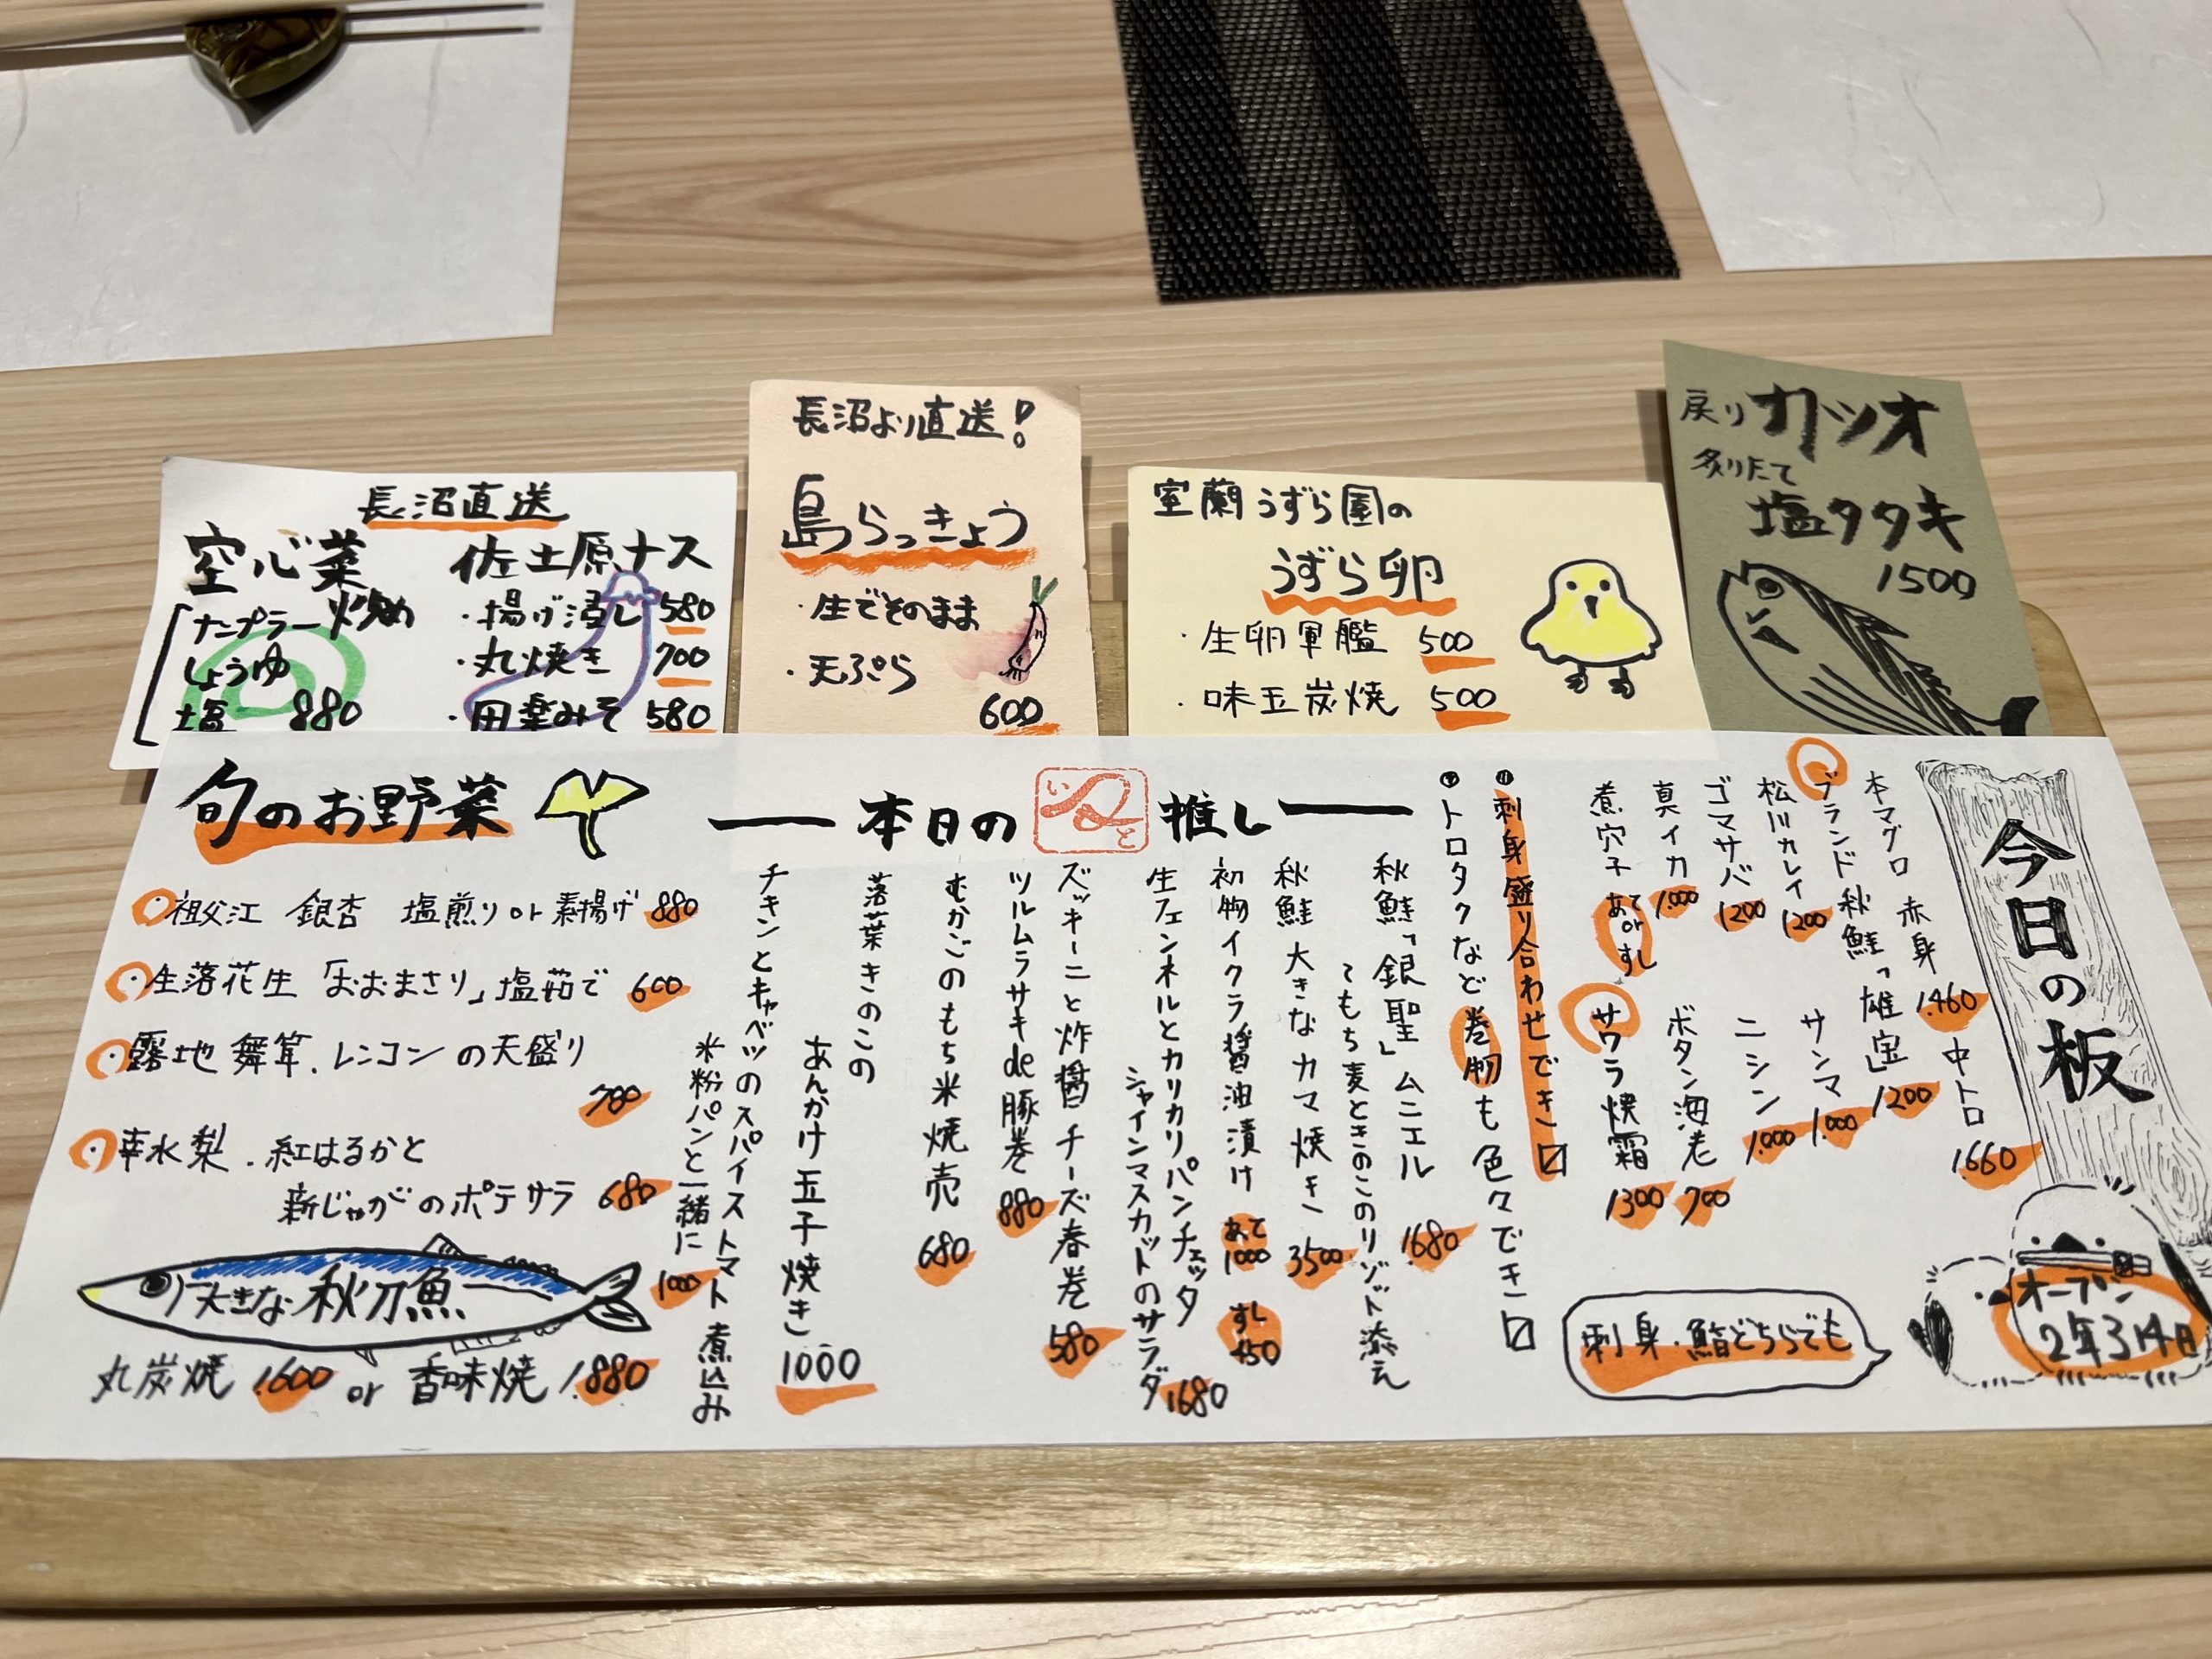 長沼直送
空心菜
ナンプラー炒め
しょうゆ
塩 880
佐土原ナス
・揚げ浸し 580
・丸焼き 700
・田楽みそ 580
長沼より直送!
島らっきょう
・生でそのまま
・天ぷら
600
室蘭うずら園の
うずら卵
・生卵軍艦 500
・味玉炭焼 500
戻りカツオ
炙りたて
塩タタキ
1500
今日の板
本マグロ 赤身 1.460 中トロ 1.660
ブランド秋鮭「雄宝」 1200
松川カレイ 1200
サンマ 1.000
ゴマサバ 1200
ニシン 1.000
真イカ 1.000
ボタン海老 700
煮穴子 あて or すし
サワラ焼霜 1300
刺身・鮨どちらでも
オープン
2年314日
刺身盛り合わせでき□
トロタクなど巻物も色々でき□
本日の いと 推し
秋鮭「銀聖」ムニエル
てもち麦ときのこのリゾット添え 1680
秋鮭 大きなカマ焼き 3500
初物イクラ醤油漬け あて 1000 すし 450
生フェンネルとカリカリパンチェッタ
シャインマスカットのサラダ 1680
ズッキーニと炸醤チーズ春巻 580
ツルムラサキde豚巻 880
むかごのもち米焼売 680
落葉きのこの
あんかけ玉子焼き 1000
チキンとキャベツのスパイストマト煮込み
米粉パンと一緒に 1000
旬のお野菜
祖父江 銀杏 塩煎り or 素揚げ 880
生落花生「おおまさり」塩茹で 600
露地 舞茸.レンコンの天盛り
780
幸水梨.紅はるかと
新じゃがのポテサラ 680
大きな秋刀魚
丸炭焼 1.600 or 香味焼 1.880